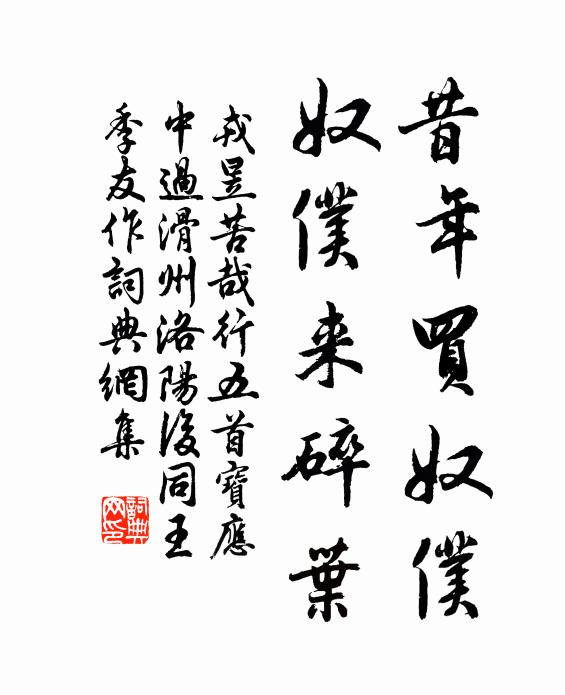 昔年買奴僕
奴僕来碎葉
戎昱苦哉行五首寶應
中過滑州洛陽後同王
季友作詞典網集
詞典网印